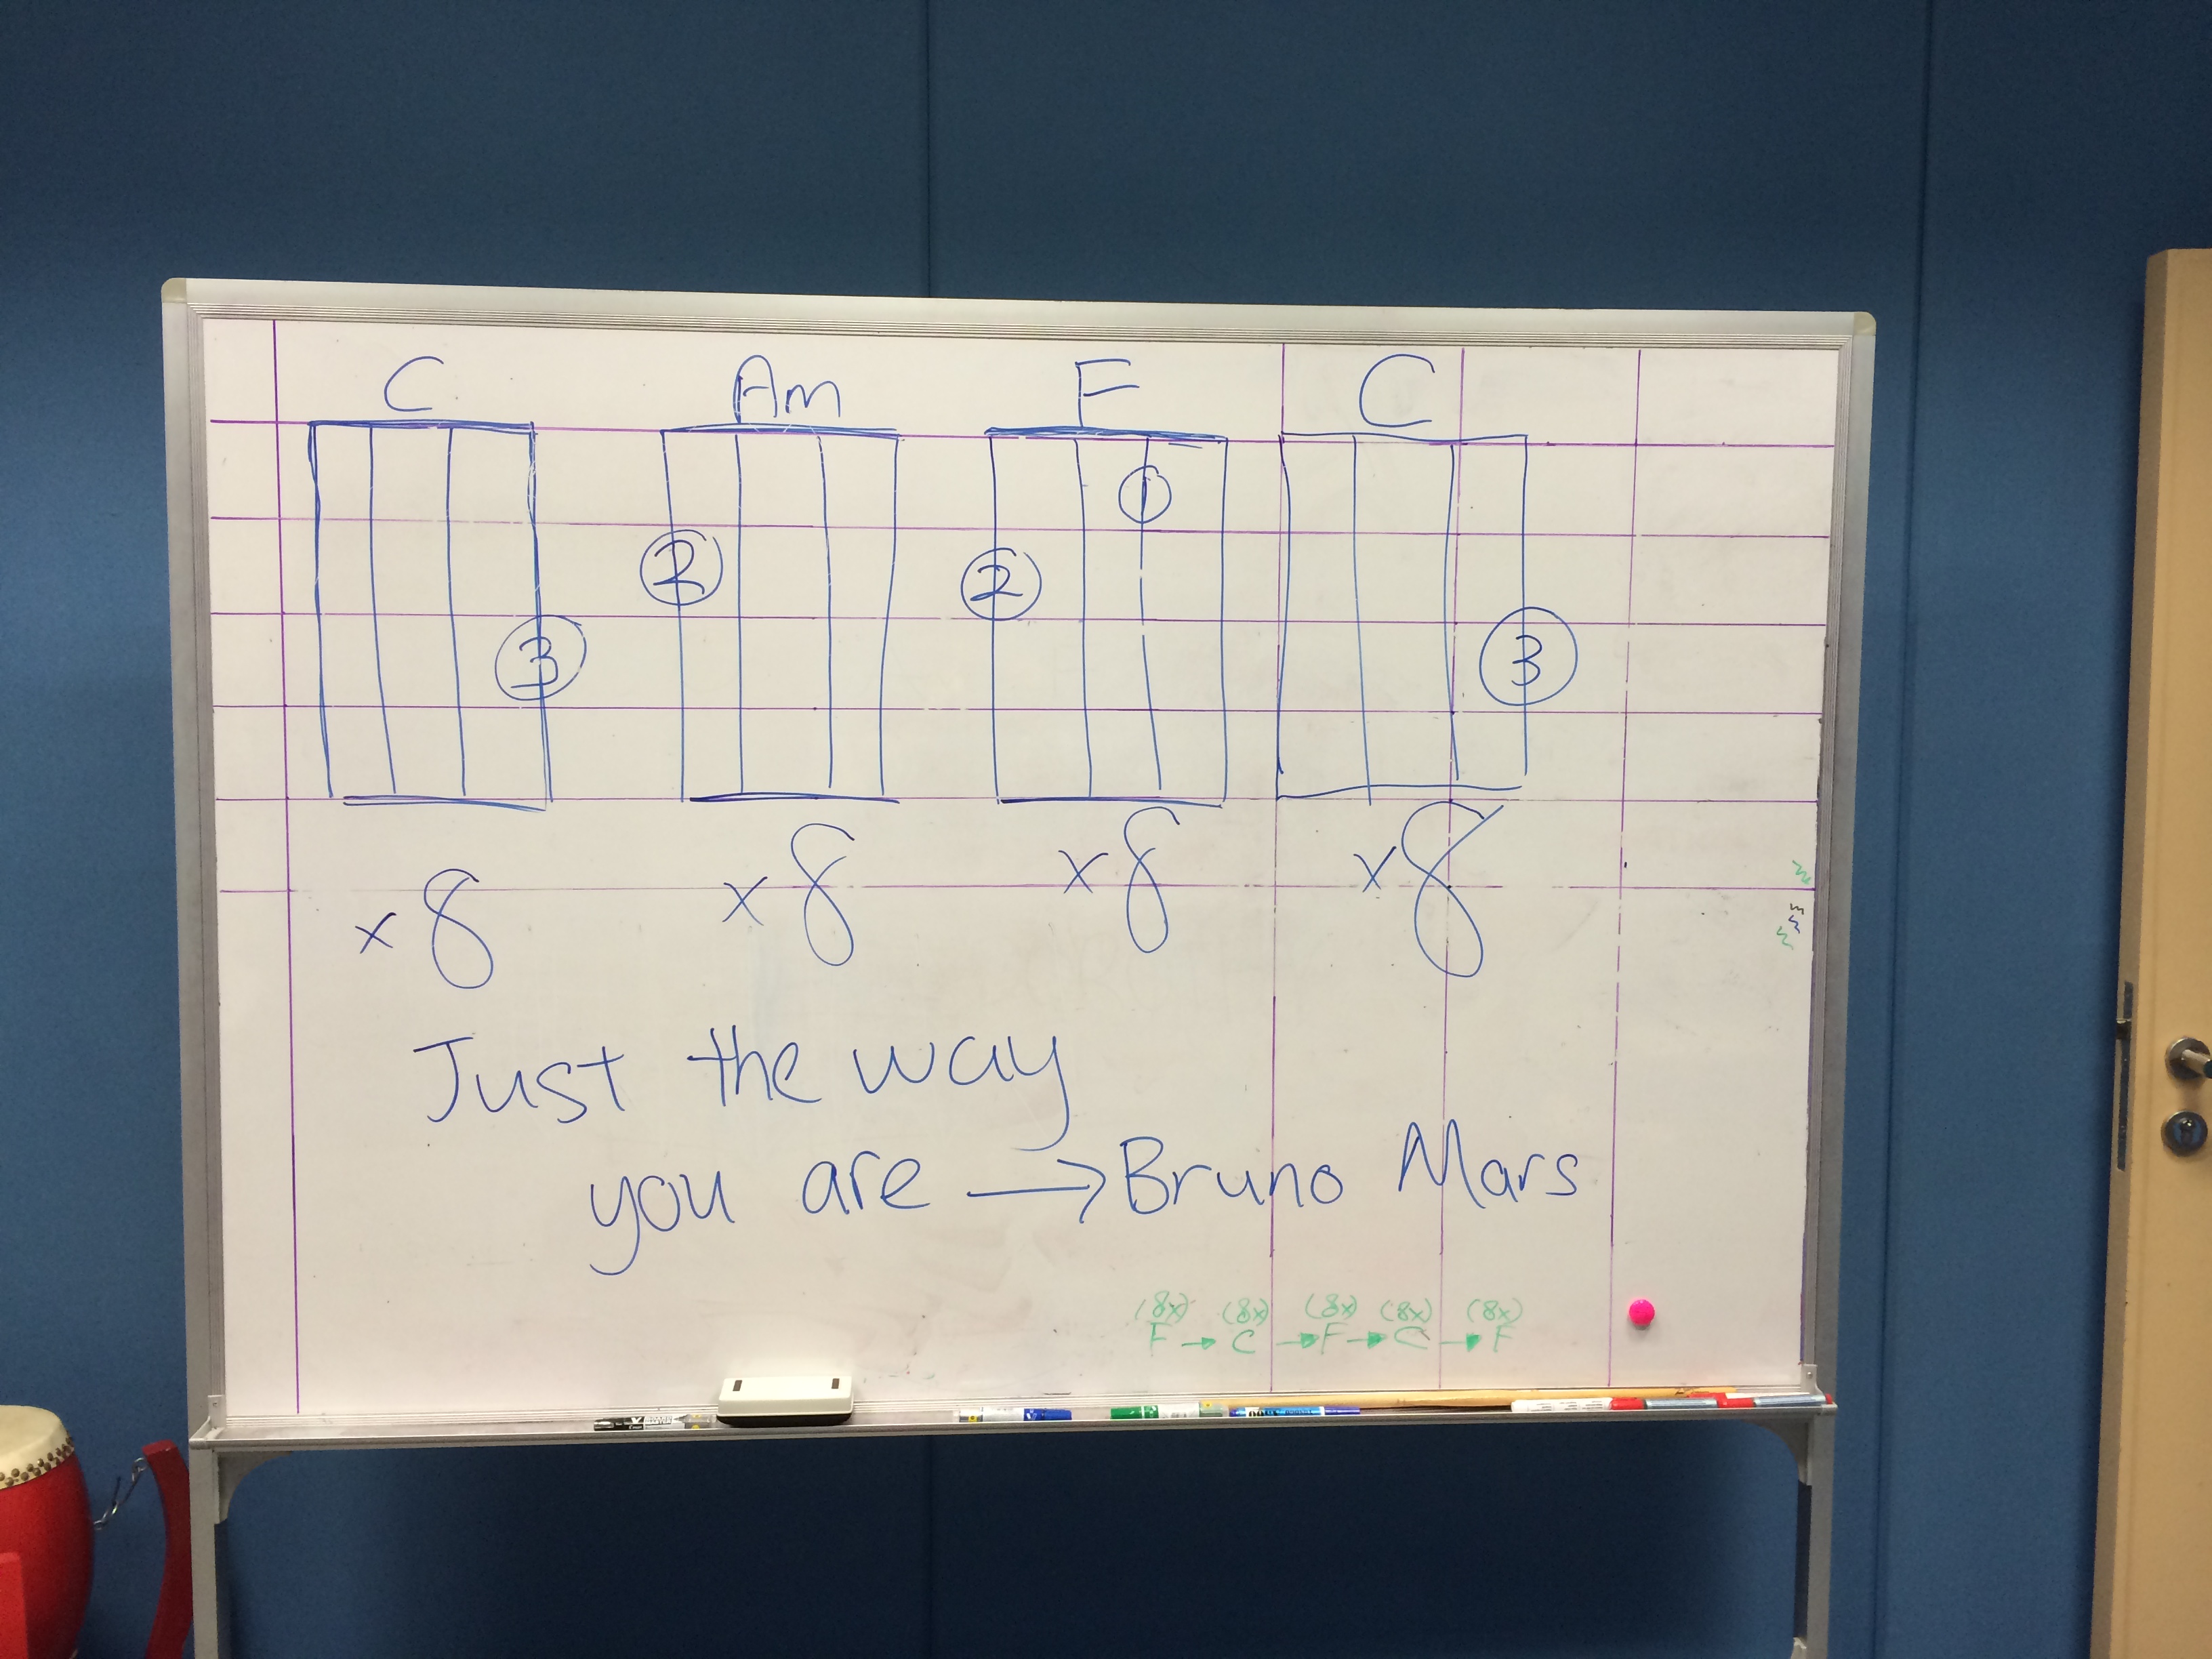 C Am F C
1
2 2
3 3
x 8 x 8 x 8 x 8
Just the way
you are → Bruno Mars
(8x) (8x) (8x) (8x) (8x)
F → C → F → C → F